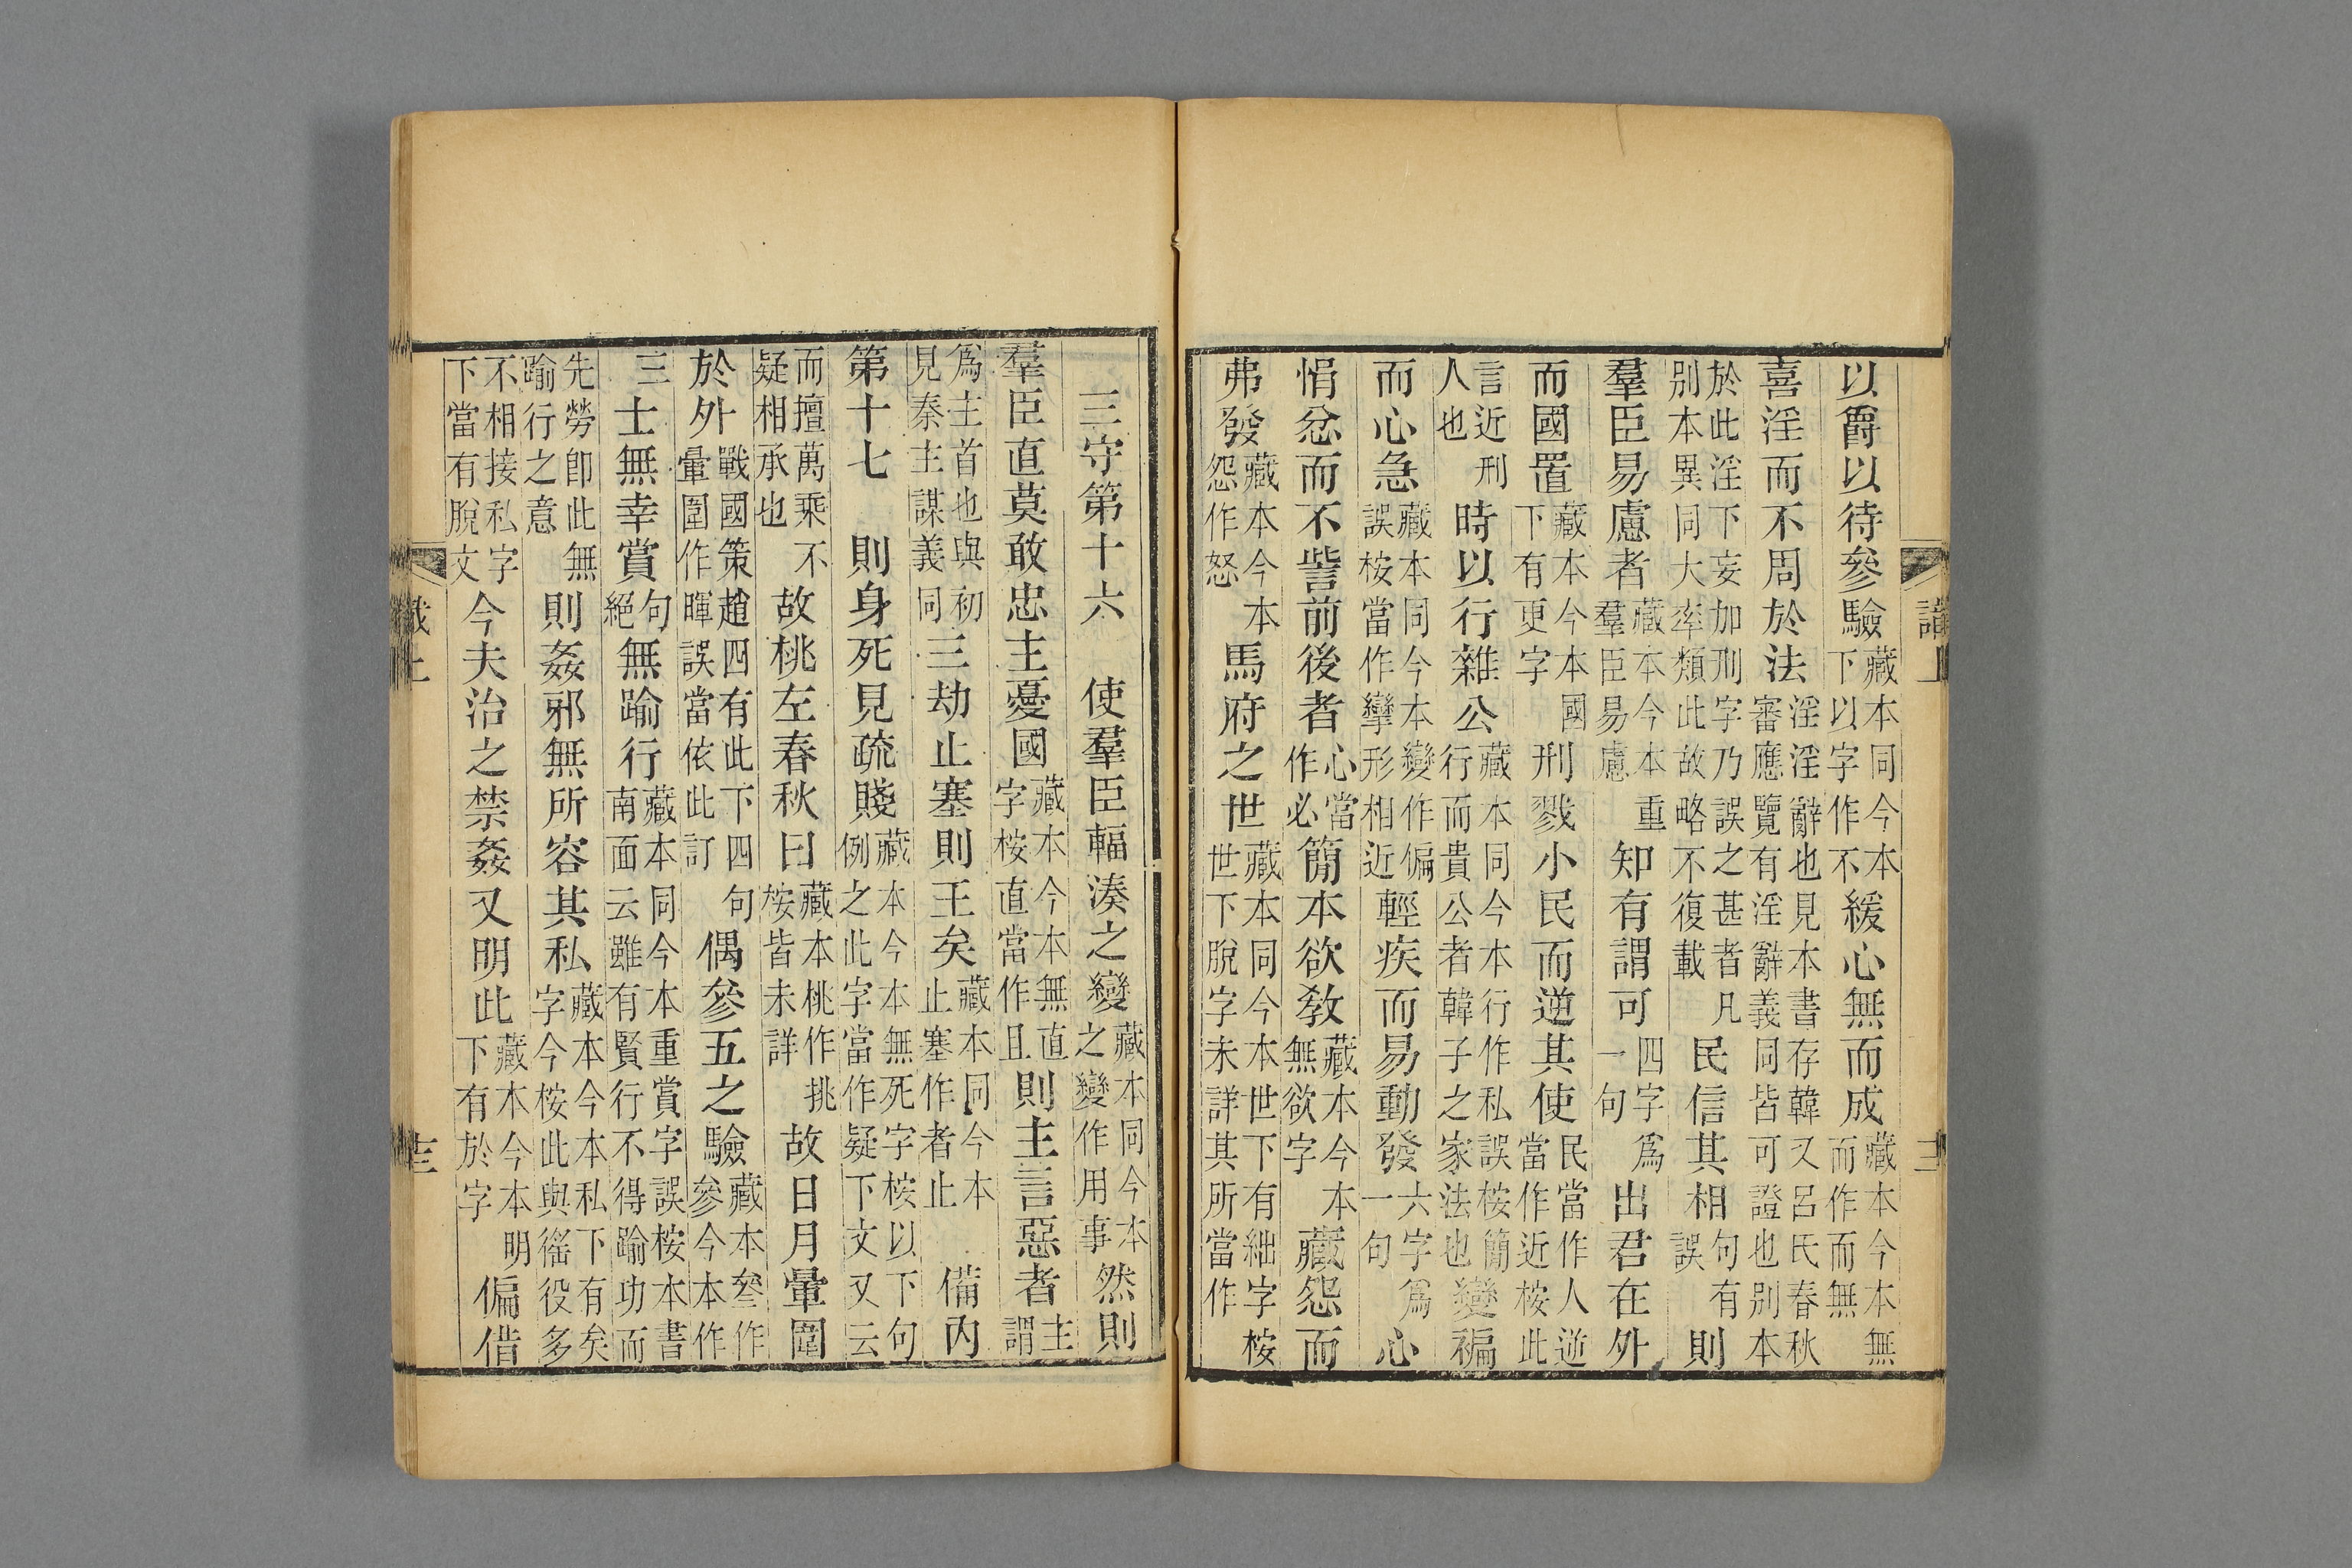 識上
以爵以待參驗藏本同今本下以字作不緩心無而成藏本今本無而作而無
喜淫而不周於法淫淫辭也見本書存韓又呂氏春秋審應覽有淫辭義同皆可證也別本
於此淫下妄加刑字乃誤之甚者凡別本異同大率類此故略不復載民信其相句有誤則
羣臣易慮者藏本今本重羣臣易慮知有謂可四字爲一句出君在外
而國置藏本今本國下有更字刑戮小民而逆其使民當作人逆當作近桉此
言近刑人也時以行雜公藏本同今本行作私誤桉簡行而貴公者韓子之家法也變褊
而心急藏本同今本變作偏誤桉當作㝈形相近輕疾而易動發六字爲一句心
悁忿而不訾前後者心當作必簡本欲教藏本今本無欲字藏怨而
弗發藏本今本怨作怒馬府之世藏本同今本世下有絀字桉世下脫字未詳其所當作
三守第十六　使羣臣輻湊之變藏本同今本之變作用事然則
羣臣直莫敢忠主憂國藏本今本無直字桉直當作且則主言惡者主謂
爲主首也與初見秦主謀義同三劫止塞則王矣藏本同今本止塞作者止　備內
第十七　則身死見疏賤藏本今本無死字桉以下句例之此字當作疑下文又云
而擅萬乘不疑相承也故桃左春秋曰藏本桃作挑桉皆未詳故日月暈圍
於外戰國策趙四有此下四句暈圍作暉誤當依此訂偶參五之驗藏本叄作參今本作
三士無幸賞句絕無踰行藏本同今本重賞字誤桉本書南面云雖有賢行不得踰功而
先勞卽此無踰行之意則姦邪無所容其私藏本今本私下有矣字今桉此與徭役多
不相接私字下當有脫文今夫治之禁姦又明此藏本今本明下有於字偏借